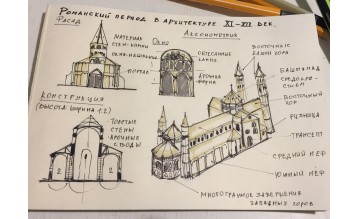 Романский период в архитектуре XI-XII век.
Фасад
Аксонометрия
Материал
стен-камни
Окно
Обтесанные
камни
Окна-машикули
Портал
Арочная
форма
Восточные
башни хора
Башня над
средокре-
стием
Восточный
хор
Ризница
Трансепт
Средний неф
Южный неф
Многогранное завершение
западных хоров
Конструкция
(высота: ширина 1:2)
Толстые
стены
Арочные
своды